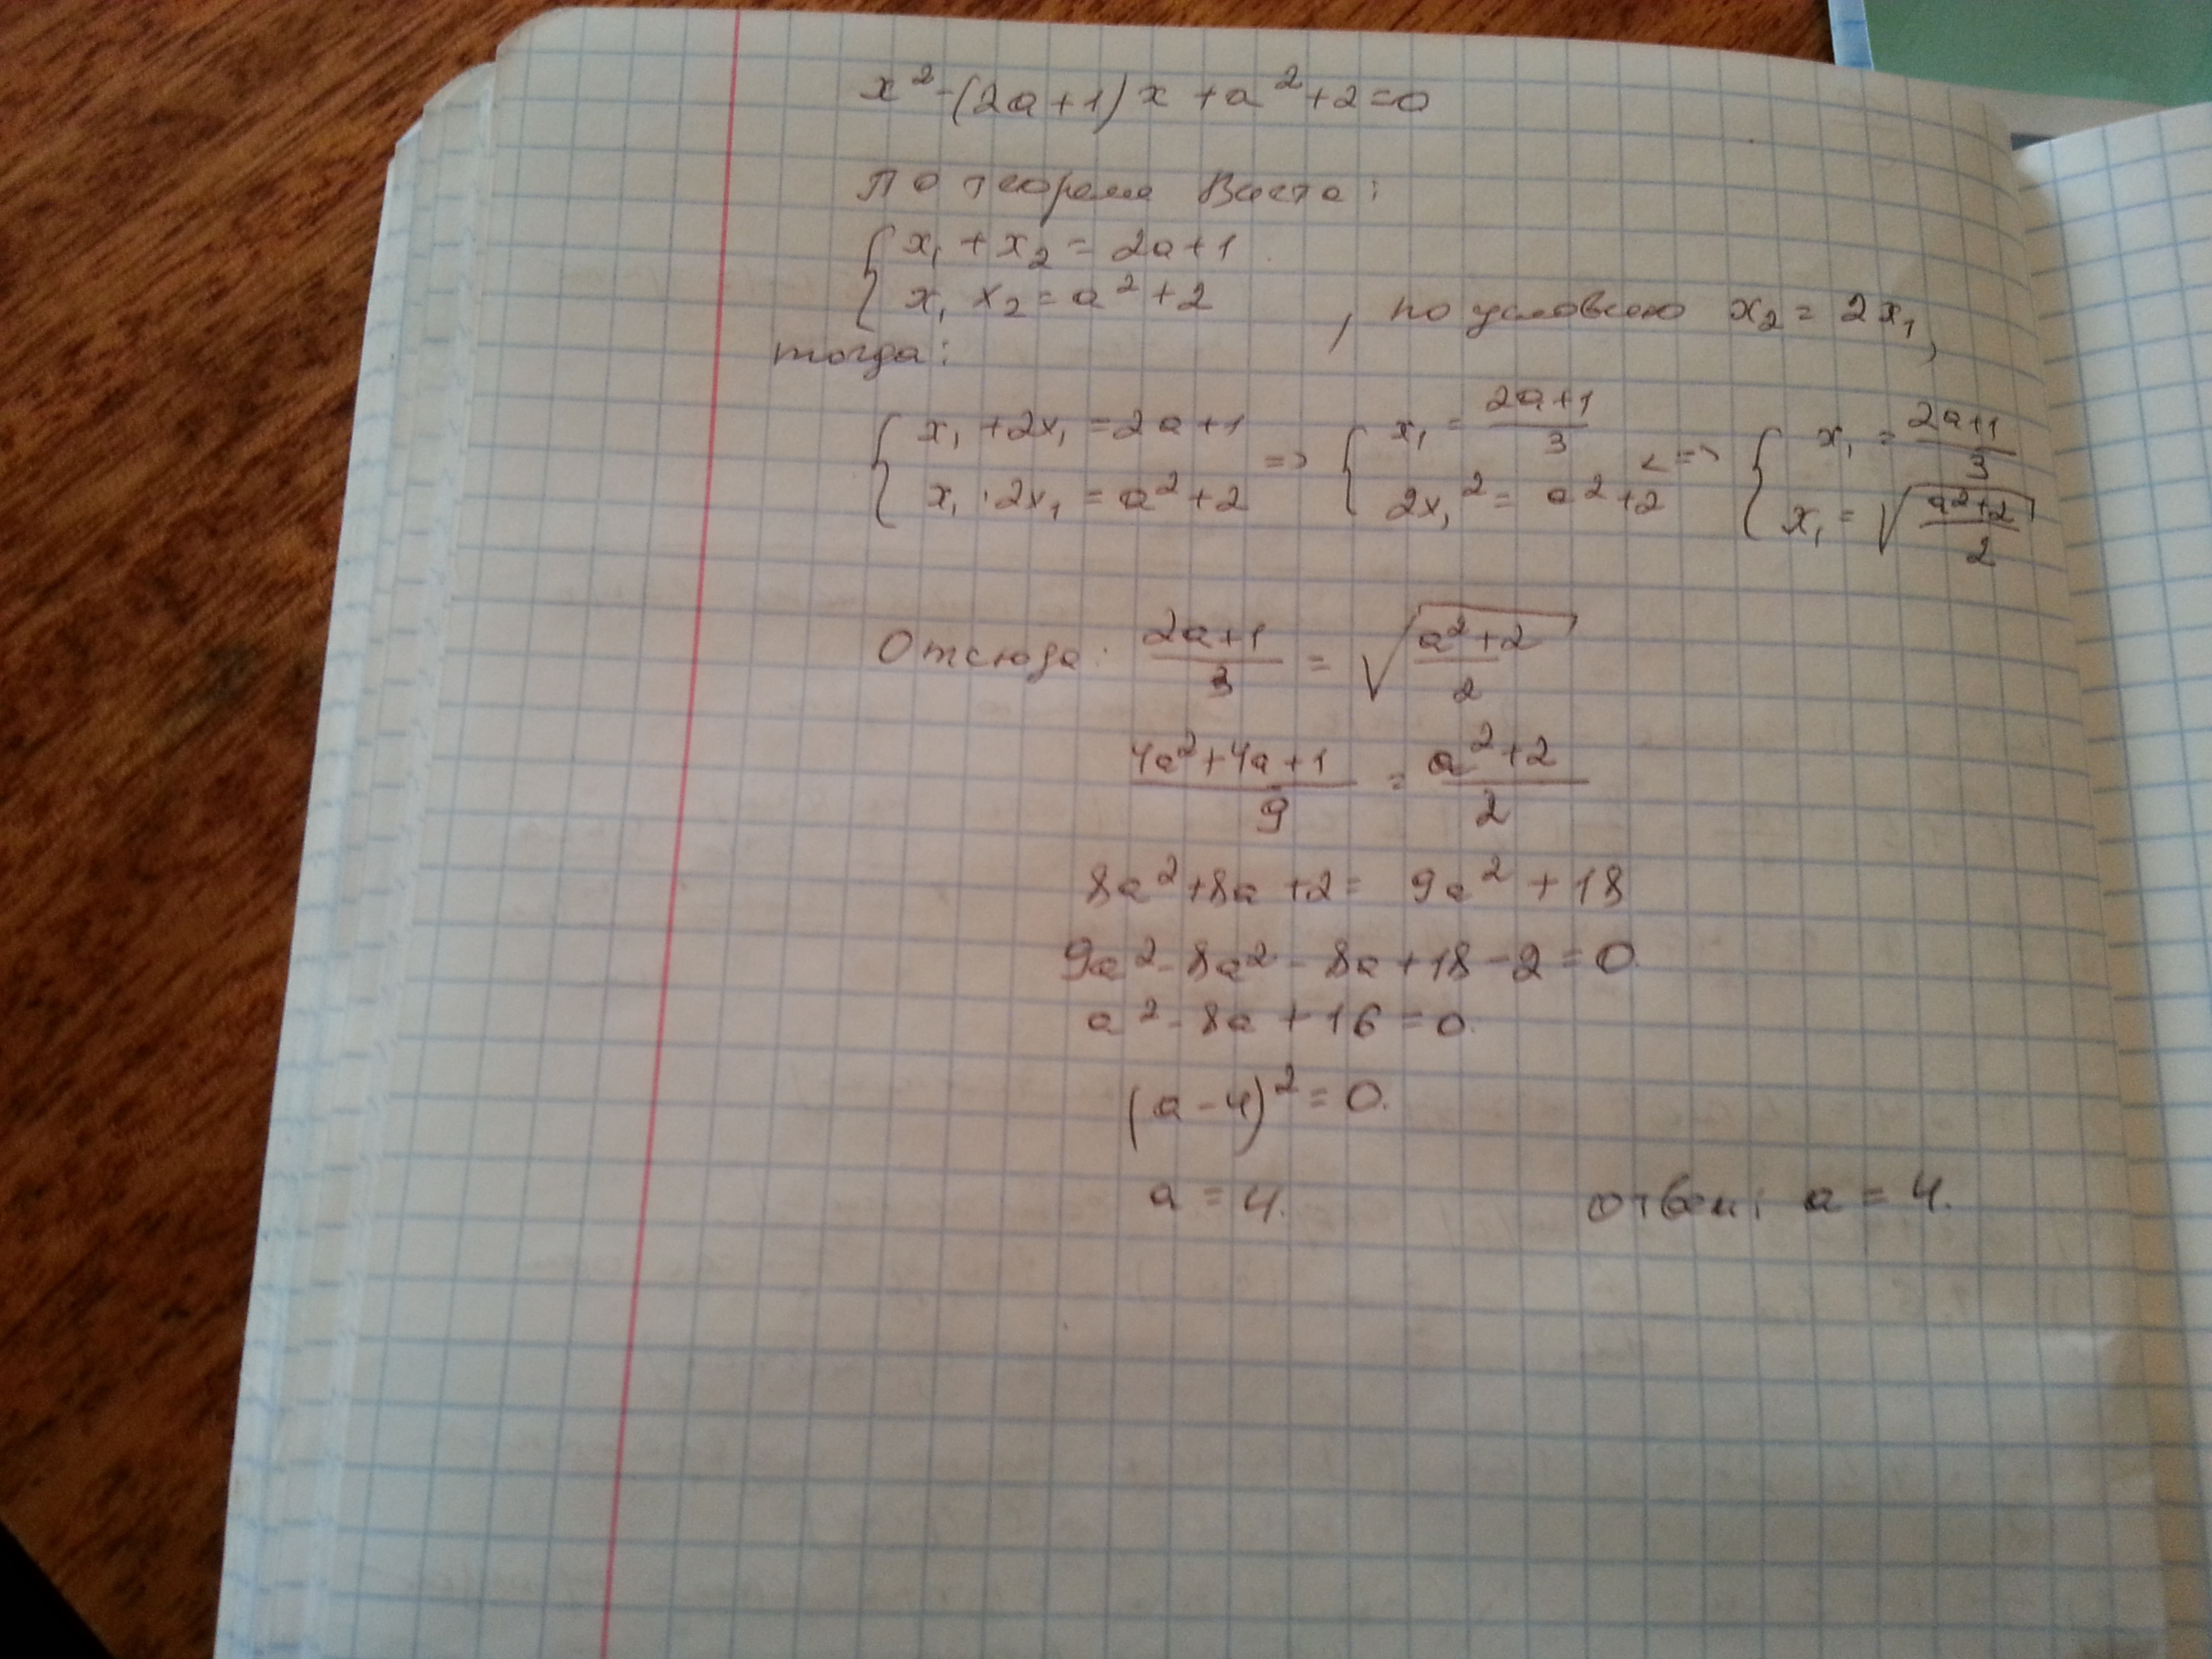 x² - (2a+1)x + a² + 2 = 0
По теореме Виета:
{ x₁ + x₂ = 2a+1
{ x₁ x₂ = a² + 2 , по условию x₂ = 2x₁,
тогда:
{ x₁ + 2x₁ = 2a+1 => { x₁ = (2a+1)/3 <=> { x₁ = (2a+1)/3
{ x₁ · 2x₁ = a² + 2 { 2x₁² = a² + 2 { x₁ = √((a²+2)/2)
Отсюда: (2a+1)/3 = √((a²+2)/2)
(4a²+4a+1)/9 = (a²+2)/2
8a² + 8a + 2 = 9a² + 18
9a² - 8a² - 8a + 18 - 2 = 0
a² - 8a + 16 = 0
(a - 4)² = 0.
a = 4. ответ: a = 4.